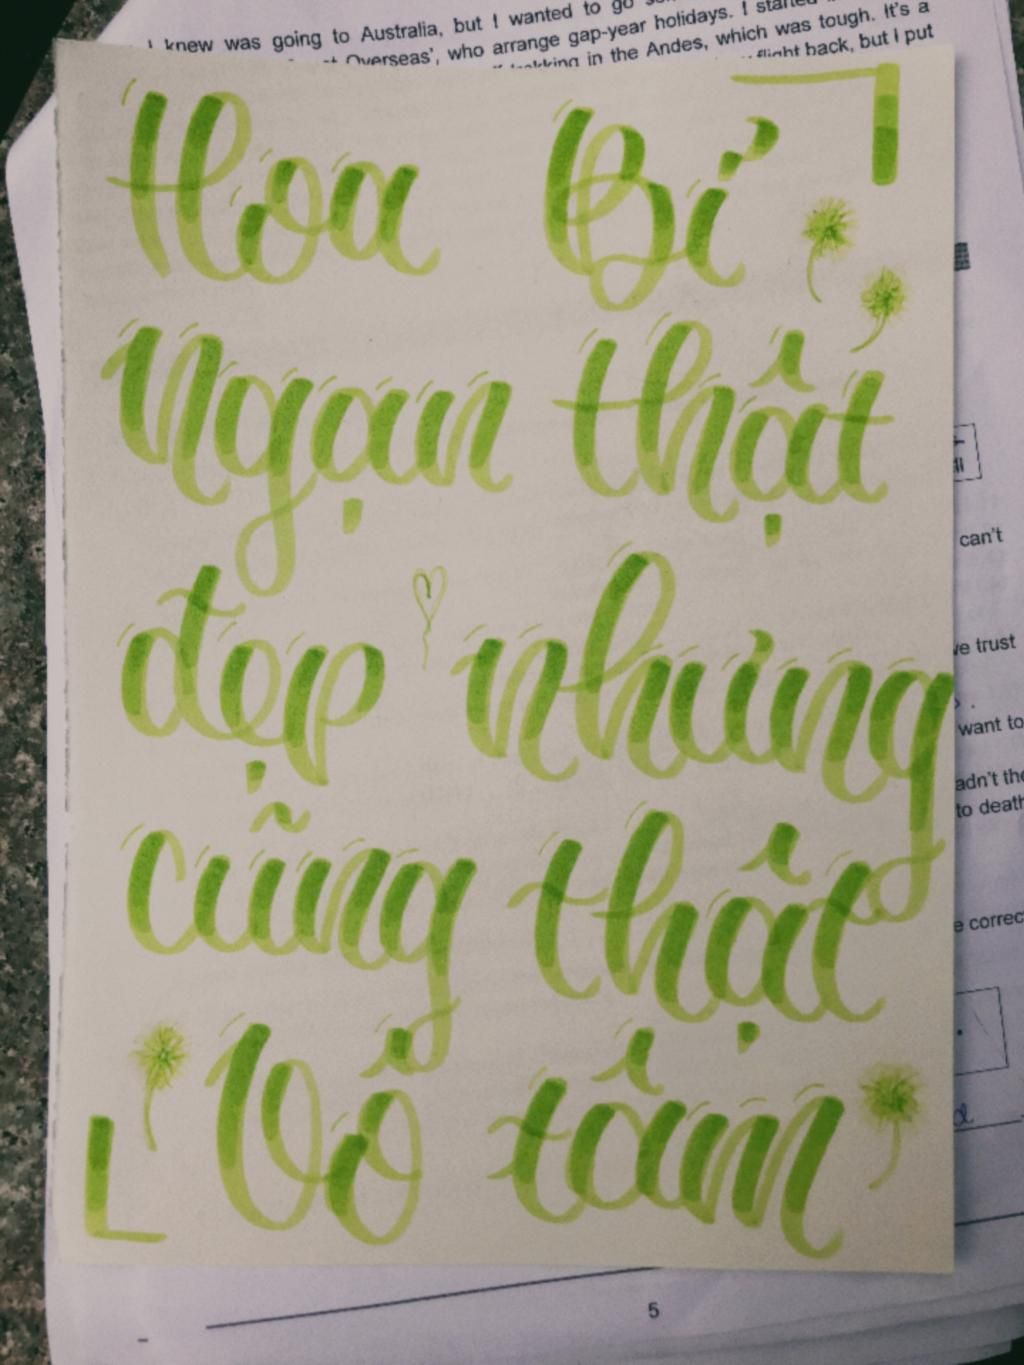 I knew was going to Australia, but I wanted to go
Overseas', who arrange gap-year holidays. I started
trekking in the Andes, which was tough. It's a
flight back, but I put
Hoa Bỉ
ngạn thật
đẹp nhưng
cũng thật
Vô tâm
can't
trust
want to
to death
5